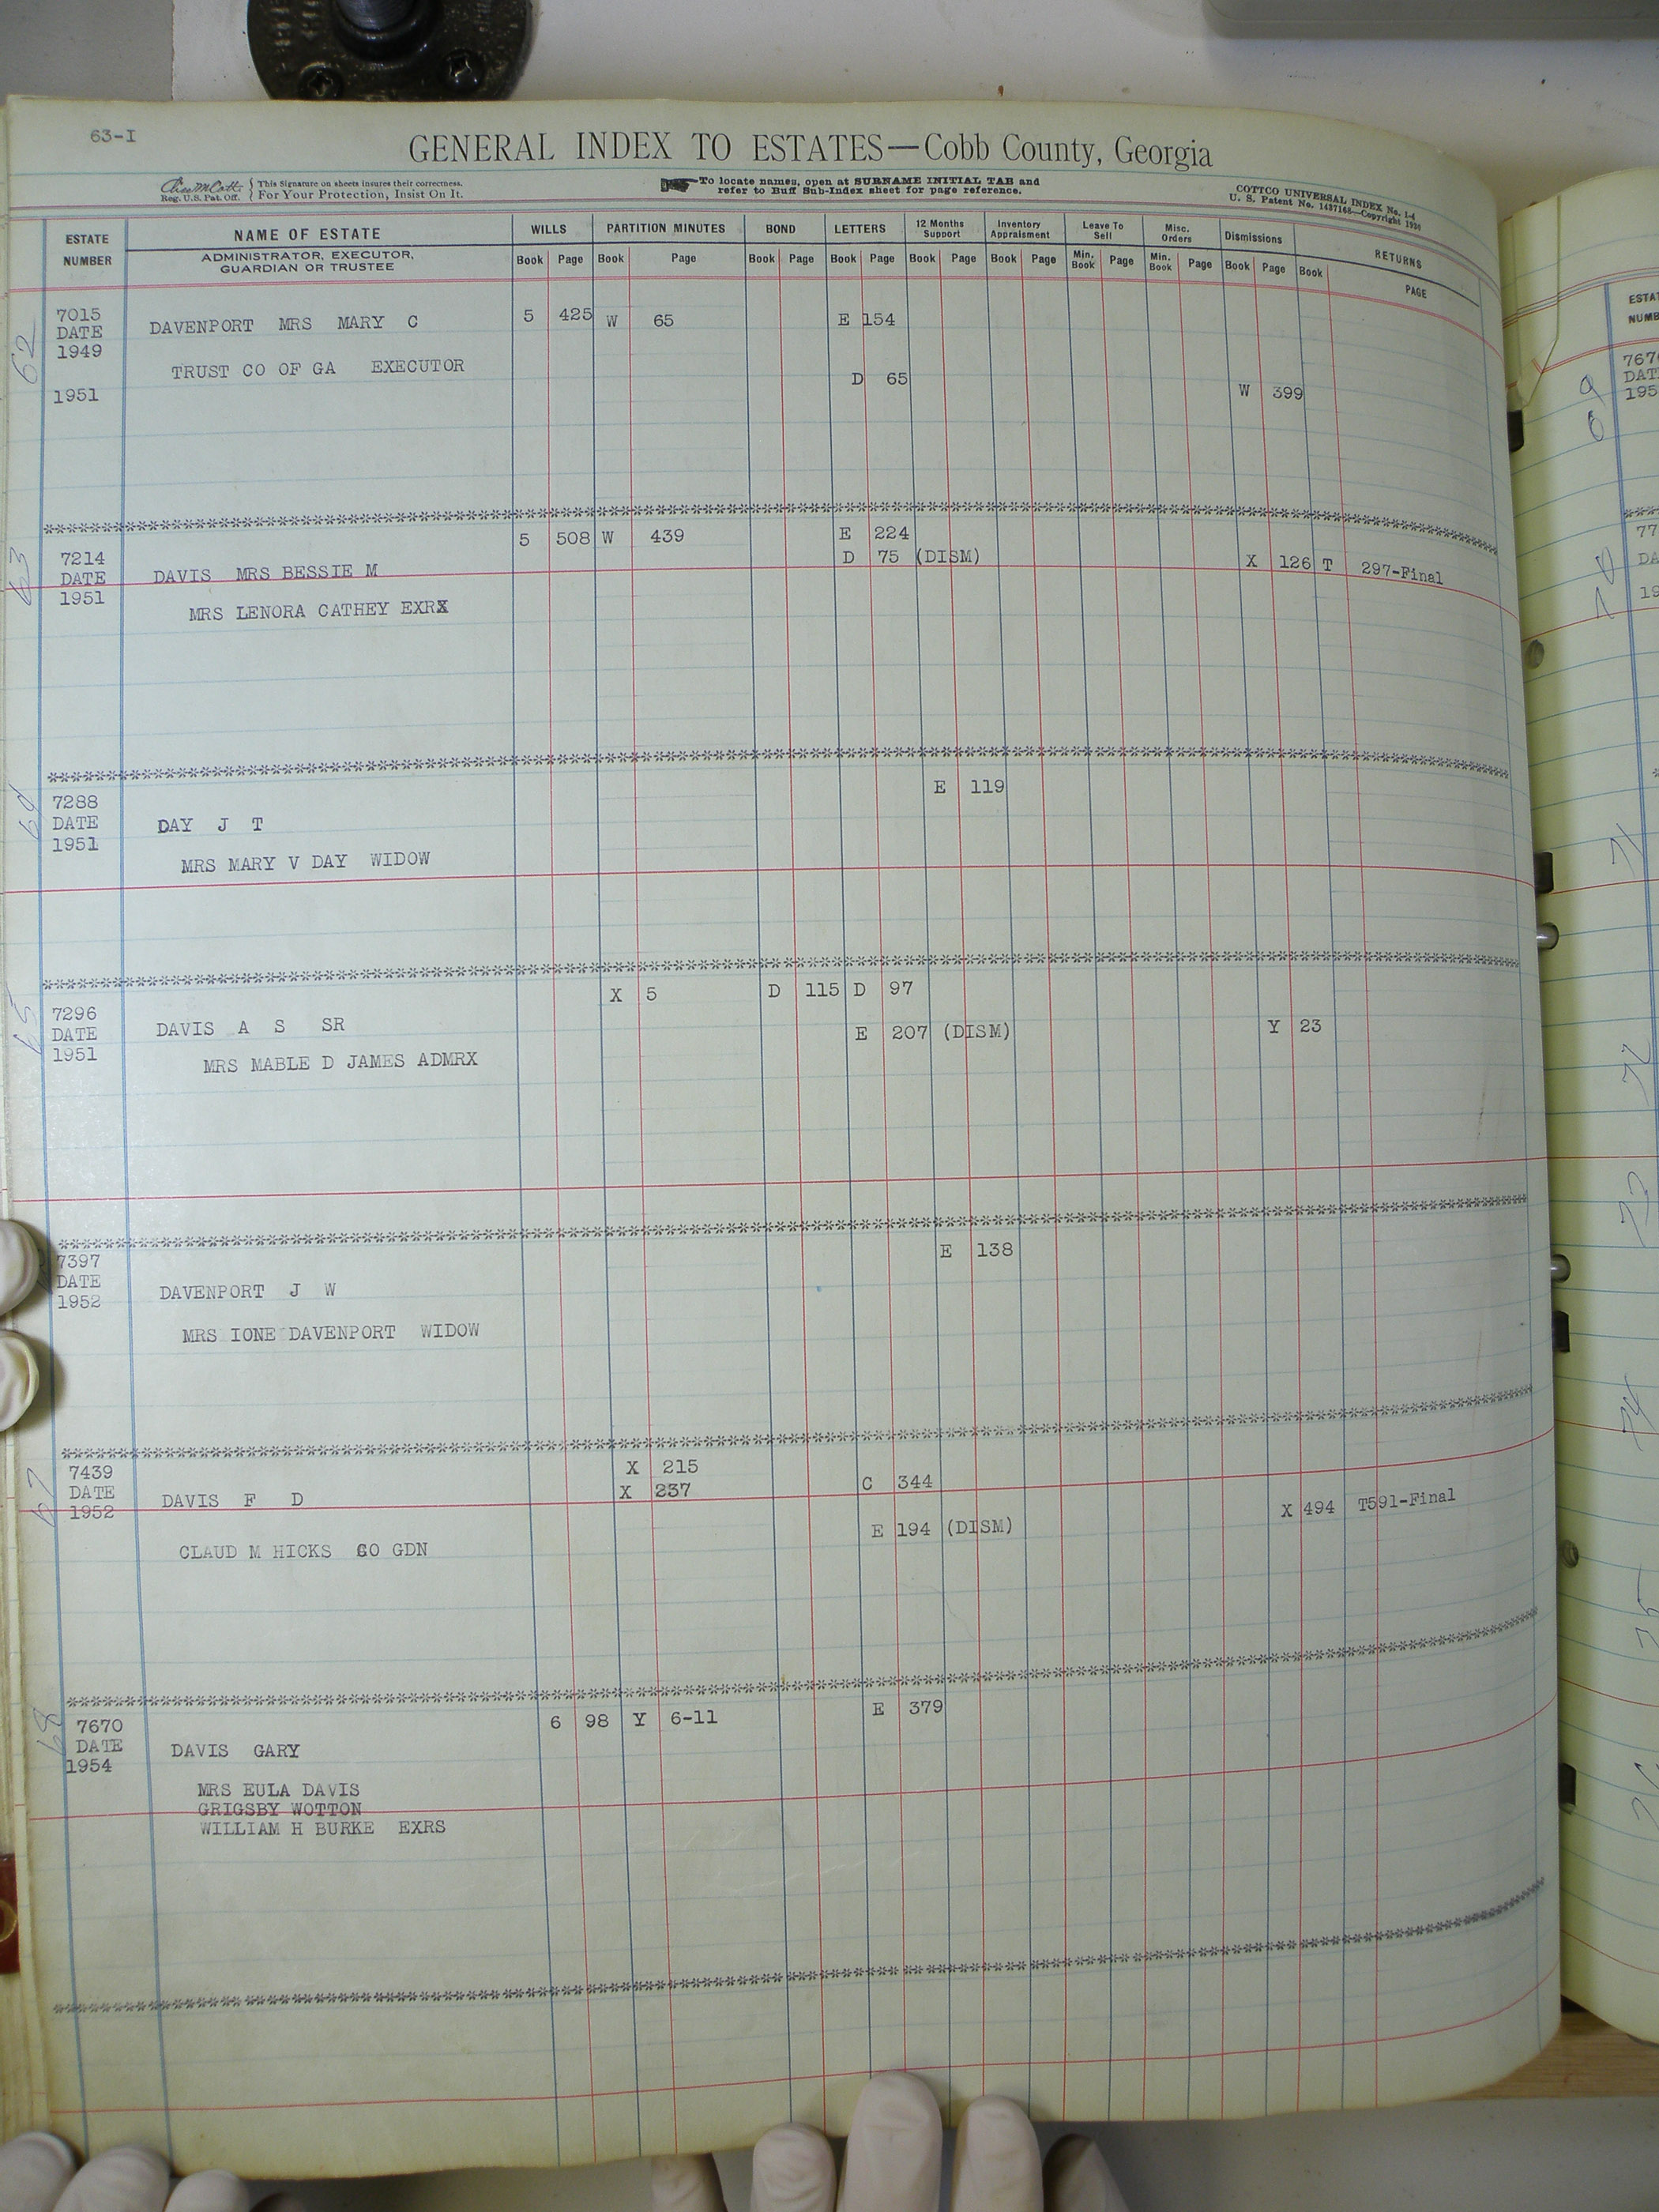 63-I
GENERAL INDEX TO ESTATES—Cobb County, Georgia
This Signature on sheets insures their correctness.
Reg. U.S. Pat. Off. For Your Protection, Insist On It.
To locate names, open at SURNAME INITIAL TAB and
refer to Buff Sub-Index sheet for page reference.
COTTCO UNIVERSAL INDEX No. 1-4
U. S. Patent No. 1437168—Copyright
ESTATE NUMBER
NAME OF ESTATE
ADMINISTRATOR, EXECUTOR,
GUARDIAN OR TRUSTEE
WILLS PARTITION MINUTES BOND LETTERS 12 Months Support Inventory Appraisment Leave To Sell Misc. Orders Dismissions RETURNS
Book Page Book Page Book Page Book Page Book Page Book Page Min. Book Page Min. Book Page Book Page Book PAGE
62
7015 5 425 W 65 E 154
DATE DAVENPORT MRS MARY C
1949
TRUST CO OF GA EXECUTOR
D 65
1951 W 399
63
5 508 W 439 E 224
7214 D 75 (DISM) X 126 T 297-Final
DATE DAVIS MRS BESSIE M
1951
MRS LENORA CATHEY EXRX
64
E 119
7288
DATE DAY J T
1951
MRS MARY V DAY WIDOW
65
X 5 D 115 D 97
7296
DATE DAVIS A S SR E 207 (DISM) Y 23
1951
MRS MABLE D JAMES ADMRX
E 138
7397
DATE DAVENPORT J W
1952
MRS IONE DAVENPORT WIDOW
67
7439 X 215
DATE X 237 C 344
1952 DAVIS F D X 494 T591-Final
E 194 (DISM)
CLAUD M HICKS CO GDN
68
7670 6 98 Y 6-11 E 379
DATE DAVIS GARY
1954
MRS EULA DAVIS
GRIGSBY WOTTON
WILLIAM H BURKE EXRS
69
70
71
72
73
74
75
76